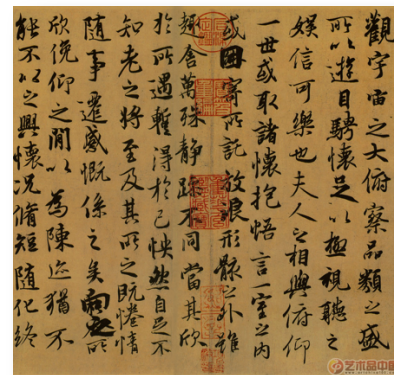 觀宇宙之大俯察品類之盛
所以遊目騁懷足以極視聽之
娛信可樂也夫人之相與俯仰
一世或取諸懷抱悟言一室之内
或因寄所託放浪形骸之外雖
趣舍萬殊靜躁不同當其欣
於所遇暫得於己怏然自足不
知老之將至及其所之既惓情
隨事遷感慨係之矣向之所
欣俛仰之閒以為陳迹猶不
能不以之興懷況脩短隨化終
艺术品中